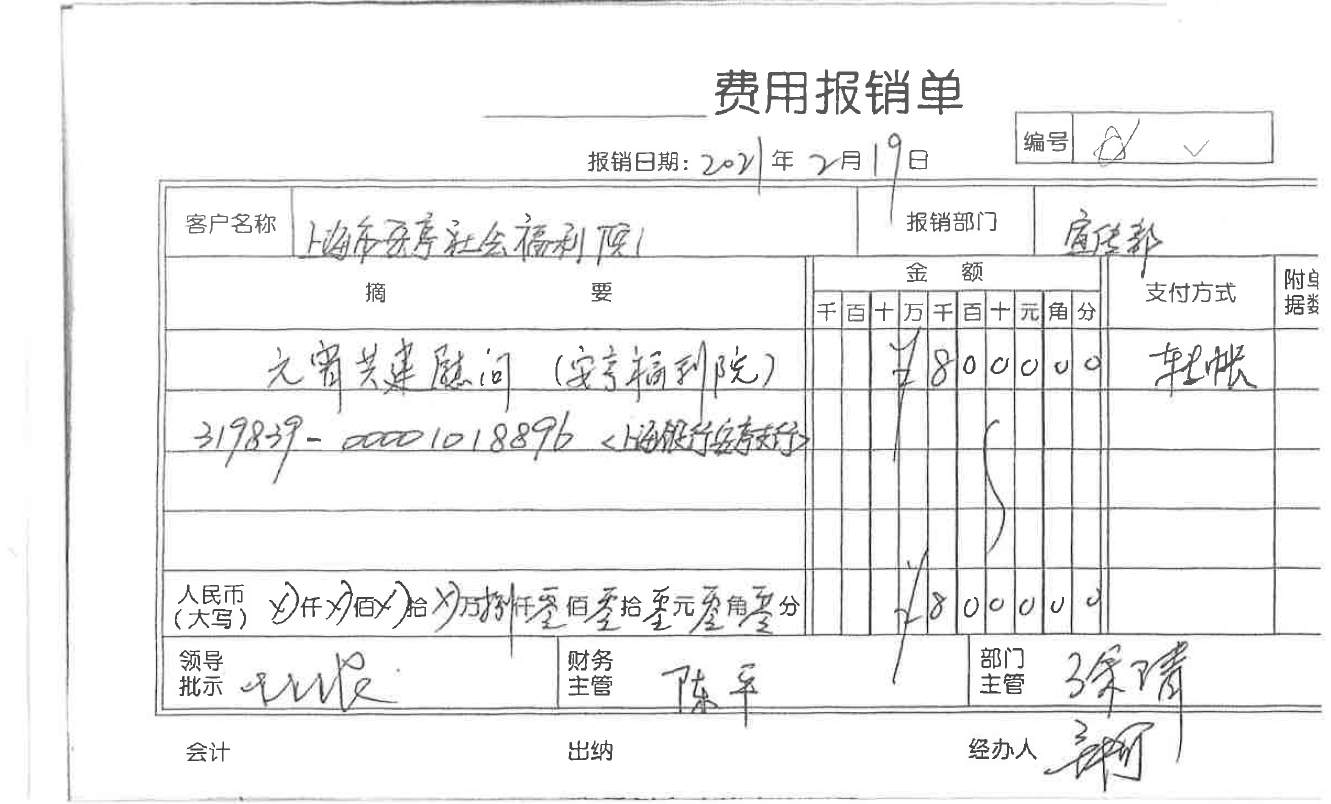 费用报销单
编号
报销日期: 2021年 2月 19日
客户名称 上海市安亭社会福利院 报销部门 宣传部
摘 要 金 额 支付方式 附单据数
千 百 十 万 千 百 十 元 角 分
元宵共建慰问 (安亭福利院) ¥ 8 0 0 0 0 0 转帐
319839-00001018896 <上海银行安亭支行>
人民币(大写) ⓧ仟ⓧ佰ⓧ拾ⓧ万捌仟零佰零拾零元零角零分 ¥ 8 0 0 0 0 0
领导批示 财务主管 陈平 部门主管 徐晴
会计 出纳 经办人